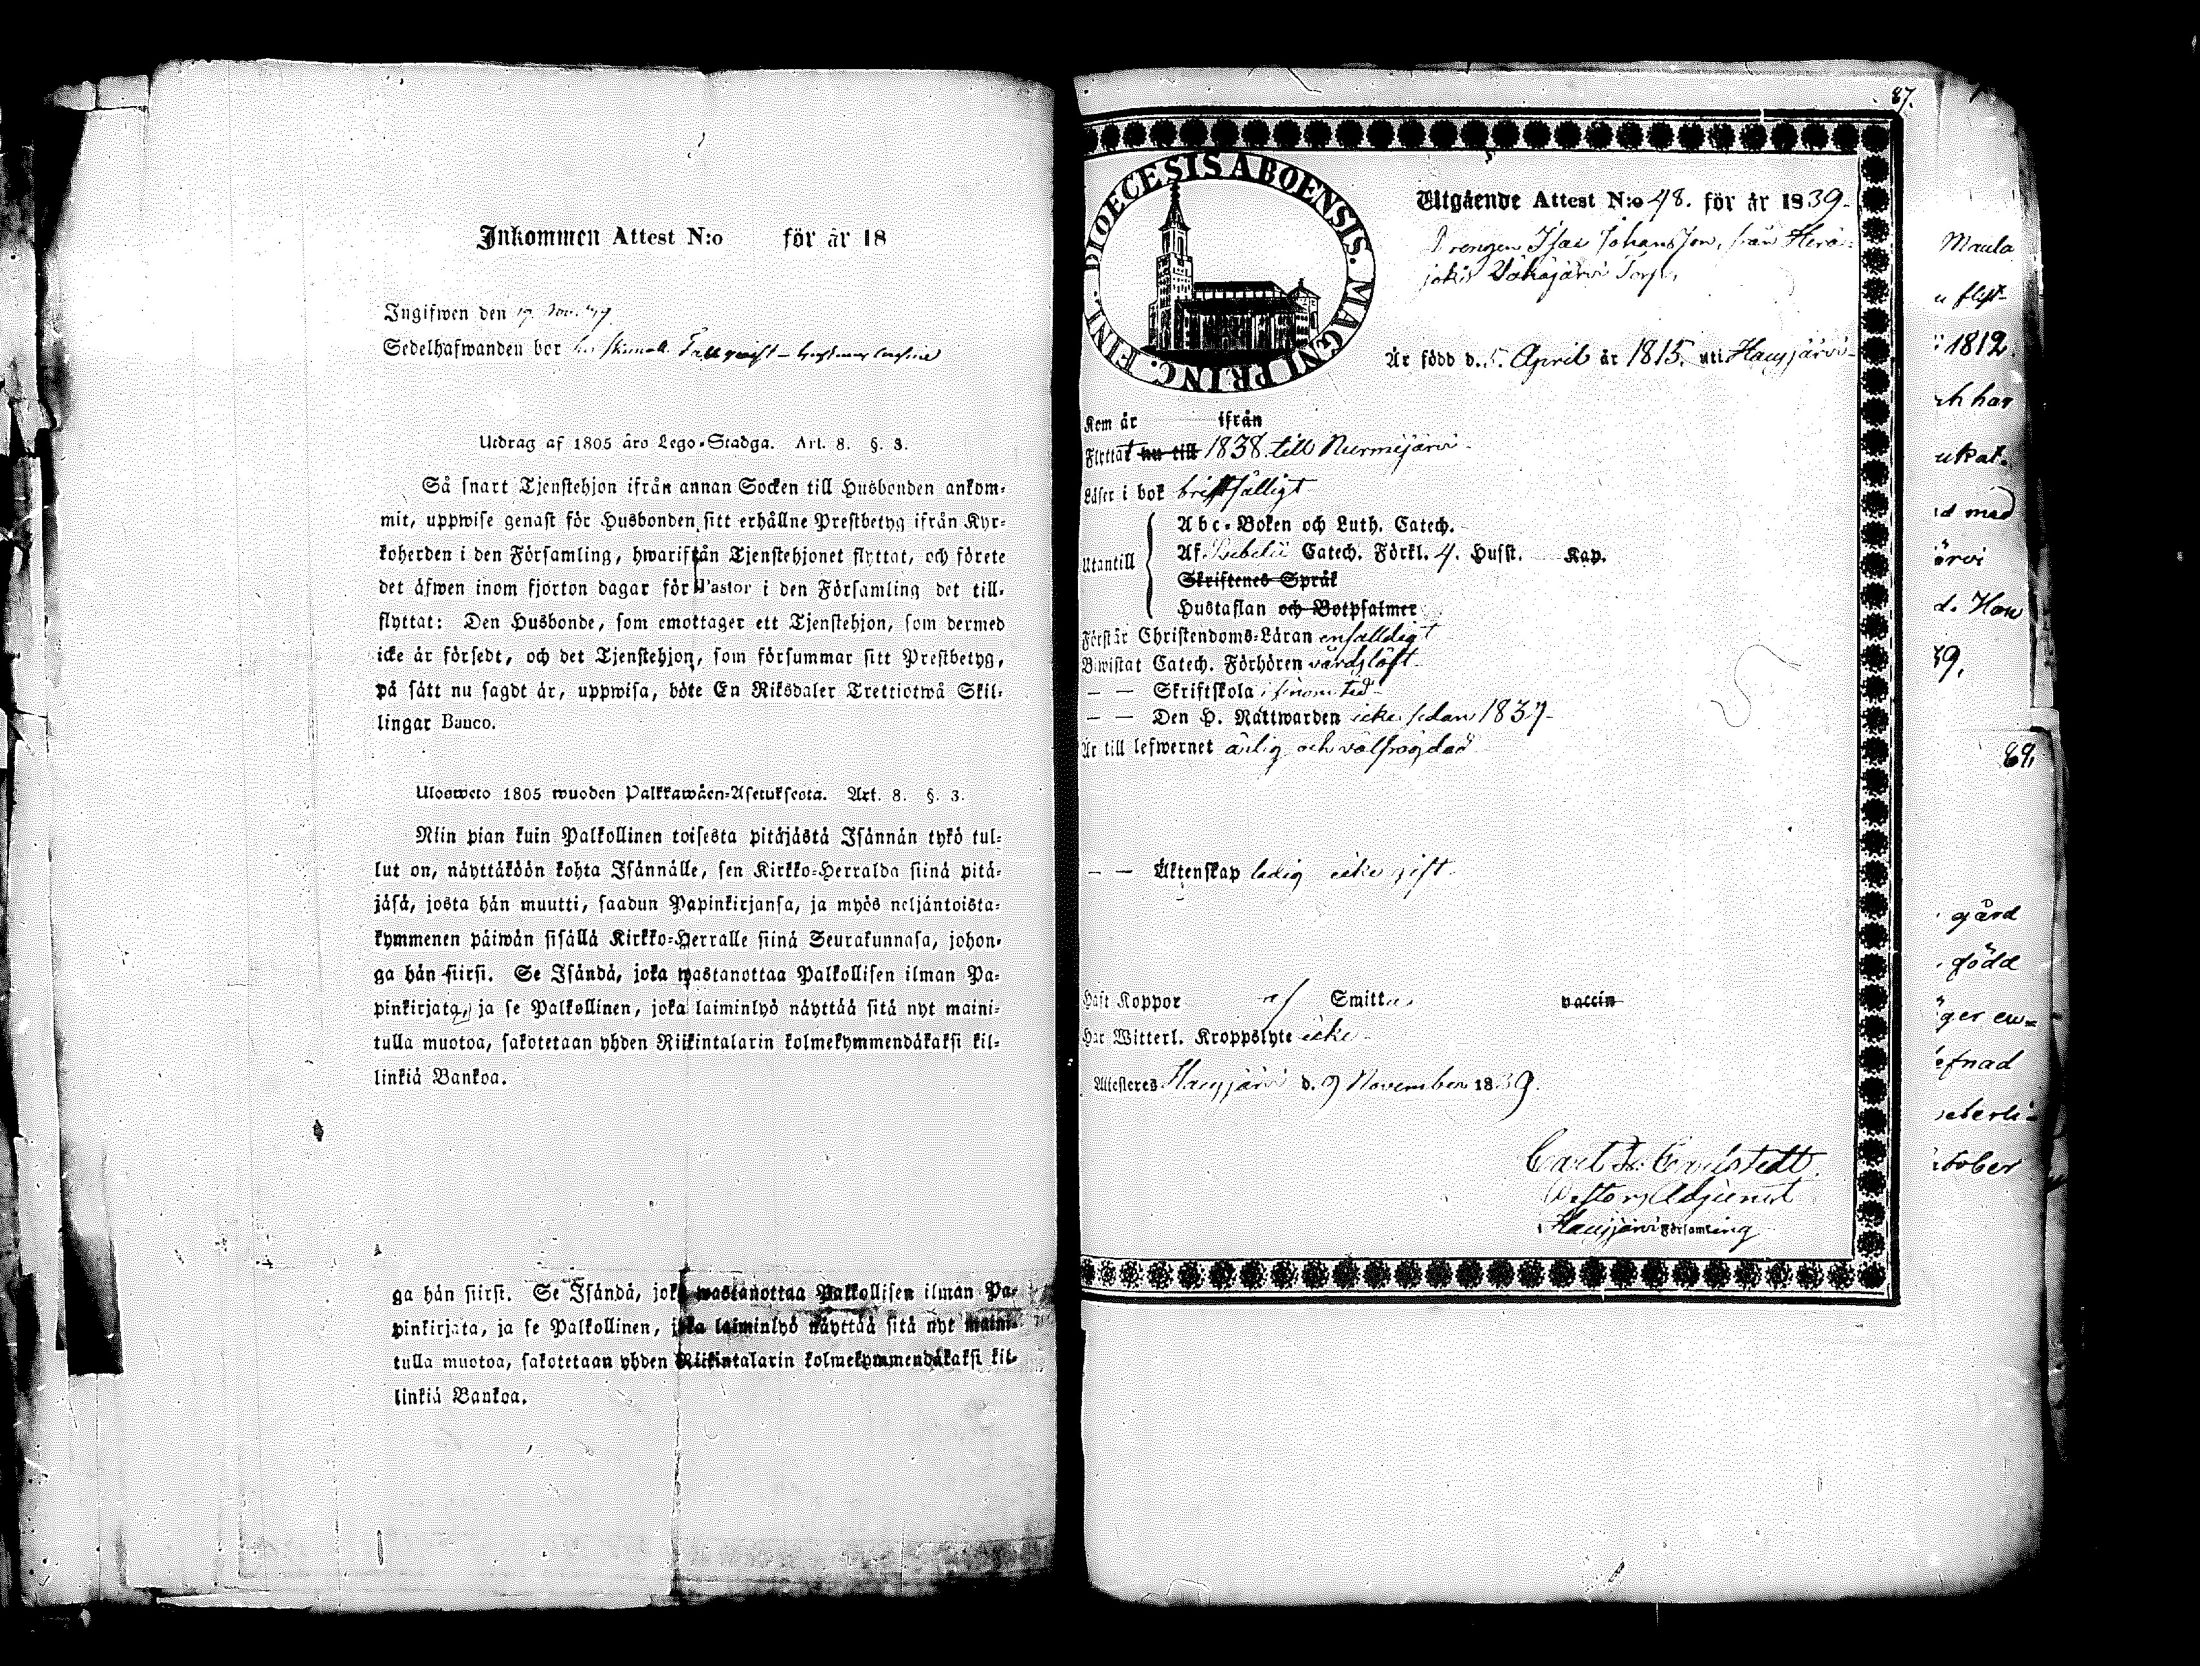 Inkommen Attest N:o för år 18
Ingifwen den 19 Nov.
Sedelhafwanden bor
Utdrag af 1805 års Lego-Stadga. Art. 8. §. 3.
Så snart Tjenstehjon ifrån annan Socken till Husbonden ankom-
mit, uppwise genast för Husbonden sitt erhållne Prestbetyg ifrån Kyr-
koherden i den Församling, hwarifrån Tjenstehjonet flyttat, och förete
det äfwen inom fjorton dagar för Pastor i den Församling det till-
flyttat: Den Husbonde, som emottager ett Tjenstehjon, som dermed
icke är försedt, och det Tjenstehjon, som försummar sitt Prestbetyg,
på sätt nu sagdt är, uppwisa, böte En Riksdaler Trettiotwå Skil-
lingar Banco.
Ulosweto 1805 wuoden Palkkawäen-Asetuksesta. Art. 8. §. 3.
Niin pian kuin Palkollinen toisesta pitäjästä Isännän tykö tul-
lut on, näyttäköön kohta Isännälle, sen Kirkko-Herralda siinä pitä-
jäsä, josta hän muutti, saadun Papinkirjansa, ja myös neljäntoista-
kymmenen päiwän sisällä Kirkko-Herralle siinä Seurakunnasa, johon-
ga hän siirsi. Se Isändä, joka wastanottaa Palkollisen ilman Pa-
pinkirjata, ja se Palkollinen, joka laiminlyö näyttää sitä nyt maini-
tulla muotoa, sakotetaan yhden Riikintalarin kolmekymmendäkaksi kil-
linkiä Bankoa.
ga hän siirsi. Se Isändä, joka wastanottaa Palkollisen ilman Pa-
pinkirjata, ja se Palkollinen, joka laiminlyö näyttää sitä nyt maini-
tulla muotoa, sakotetaan yhden Riikintalarin kolmekymmendäkaksi kil-
linkiä Bankoa.
87.
DIOECESIS ABOENSIS. MAGNI PRINC. FINL.
Utgående Attest N:o 48. för år 1839.
Drengen Isac Johansson, från Herä-
jokis Torp,
Är född d. 5. April år 1815. uti Hausjärvi
Kom år ifrån
Flyttat nu till 1838 till Nurmijärvi
Läser i bok bristfälligt
Utantill
Abc-Boken och Luth. Catech.
Af Svebelii Catech. Förkl. 4. Husst. Kap.
Skriftenes Språk
Hustaflan och Botpsalmer
Förstår Christendoms-Läran enfaldigt
Biwistat Catech. Förhören vårdslöst
— — Skriftskola i sinom tid
— — Den H. Nattwarden icke sedan 1837
Är till lefwernet ärlig och välfrägdad
— — Äktenskap ledig icke gift
Haft Koppor af Smitta vaccin
Har Witterl. Kroppslyte icke
Attesteres Hausjärvi d. 9 November 1839.
Carl
Pastors Adjunct
i Hausjärvi Församling
Maula
1812.
ch har
ukat.
d med
ärvi
d. Han
39.
89.
gård
född
ger en-
efnad
ctober